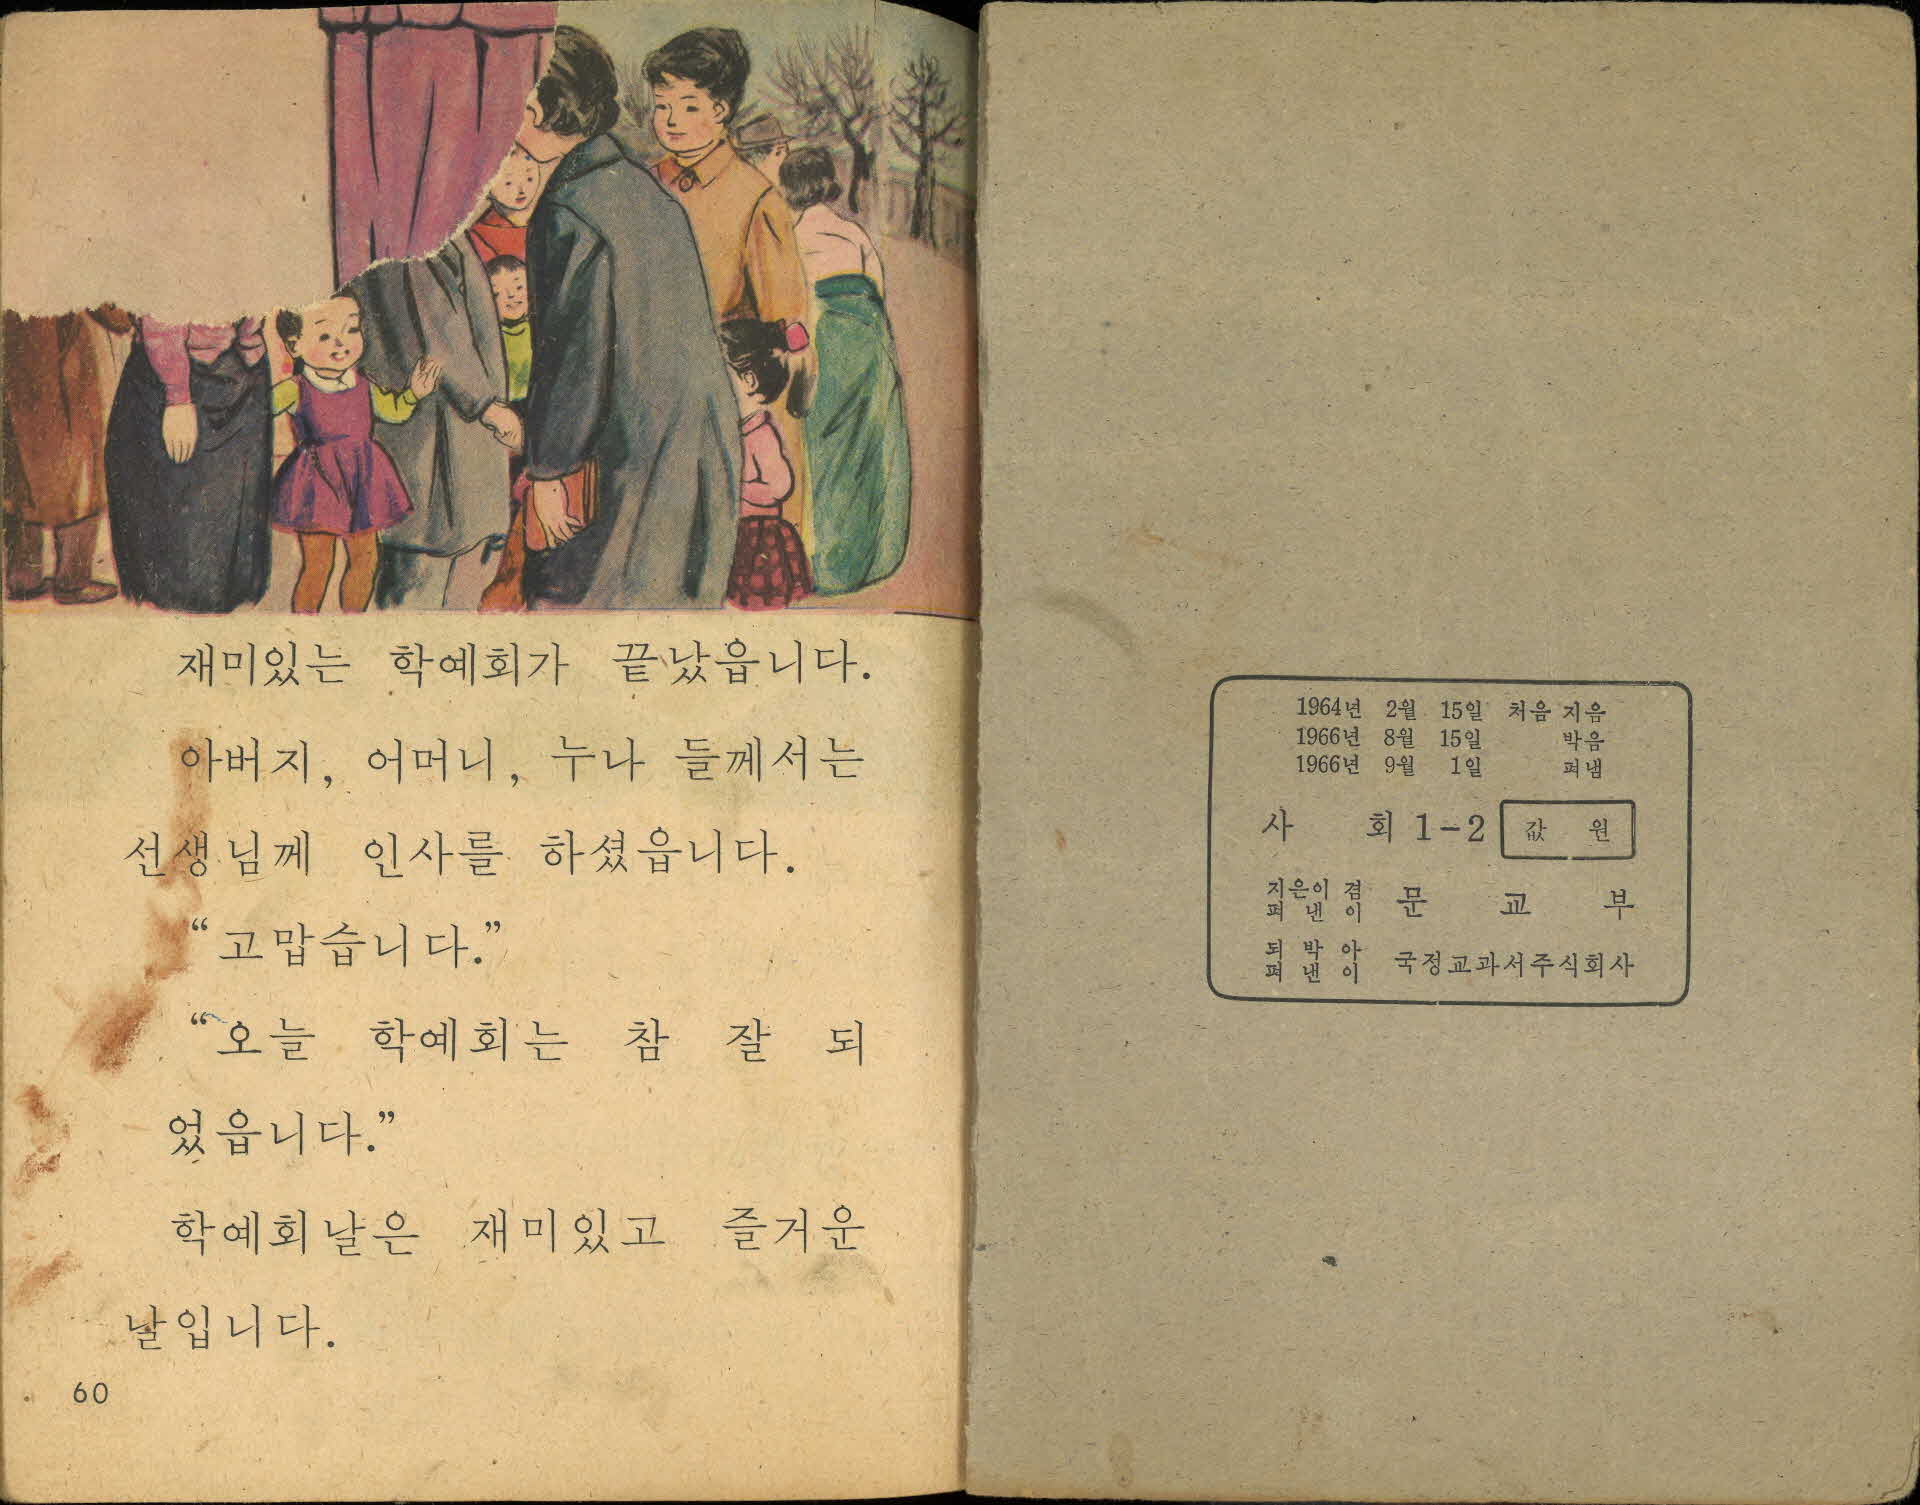 재미있는 학예회가 끝났읍니다.
아버지, 어머니, 누나 들께서는
선생님께 인사를 하셨읍니다.
“고맙습니다.”
“오늘 학예회는 참 잘 되
었읍니다.”
학예회날은 재미있고 즐거운
날입니다.
60
1964년 2월 15일 처음 지음
1966년 8월 15일 박음
1966년 9월 1일 펴냄
사 회 1-2 값 원
지은이 겸
펴 낸 이 문 교 부
되 박 아
펴 낸 이 국정교과서주식회사